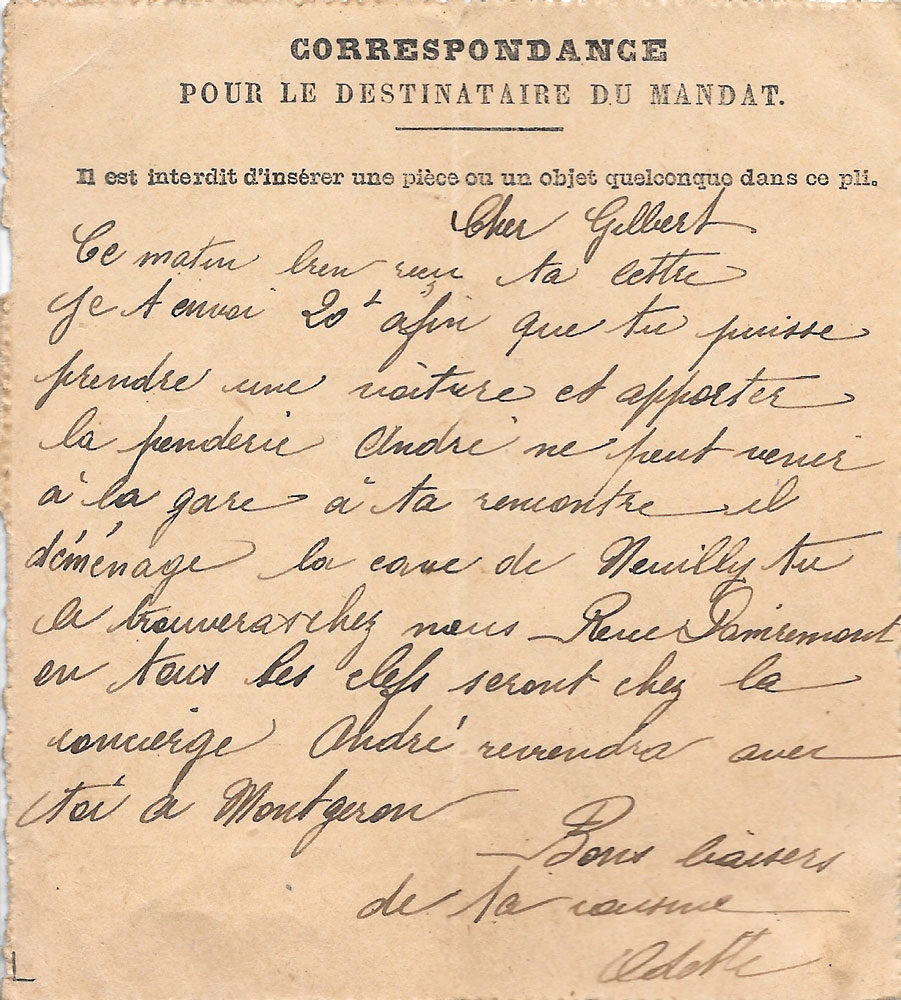 CORRESPONDANCE
POUR LE DESTINATAIRE DU MANDAT.
Il est interdit d'insérer une pièce ou un objet quelconque dans ce pli.
Cher Gilbert
Ce matin bien reçu ta lettre
je t envoi 20 afin que tu puisse
prendre une voiture et apporter
la penderie André ne peut venir
à la gare à ta rencontre il
déménage la cave de Neuilly tu
le trouveras chez nous Rue Damremont
en tous les clefs seront chez la
concierge André reviendra avec
toi a Montgeron
Bons baisers
de ta cousine
Odette